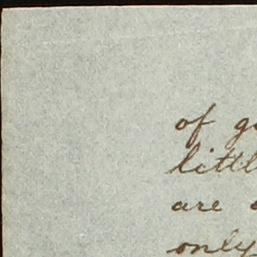 of g
littl
are
only